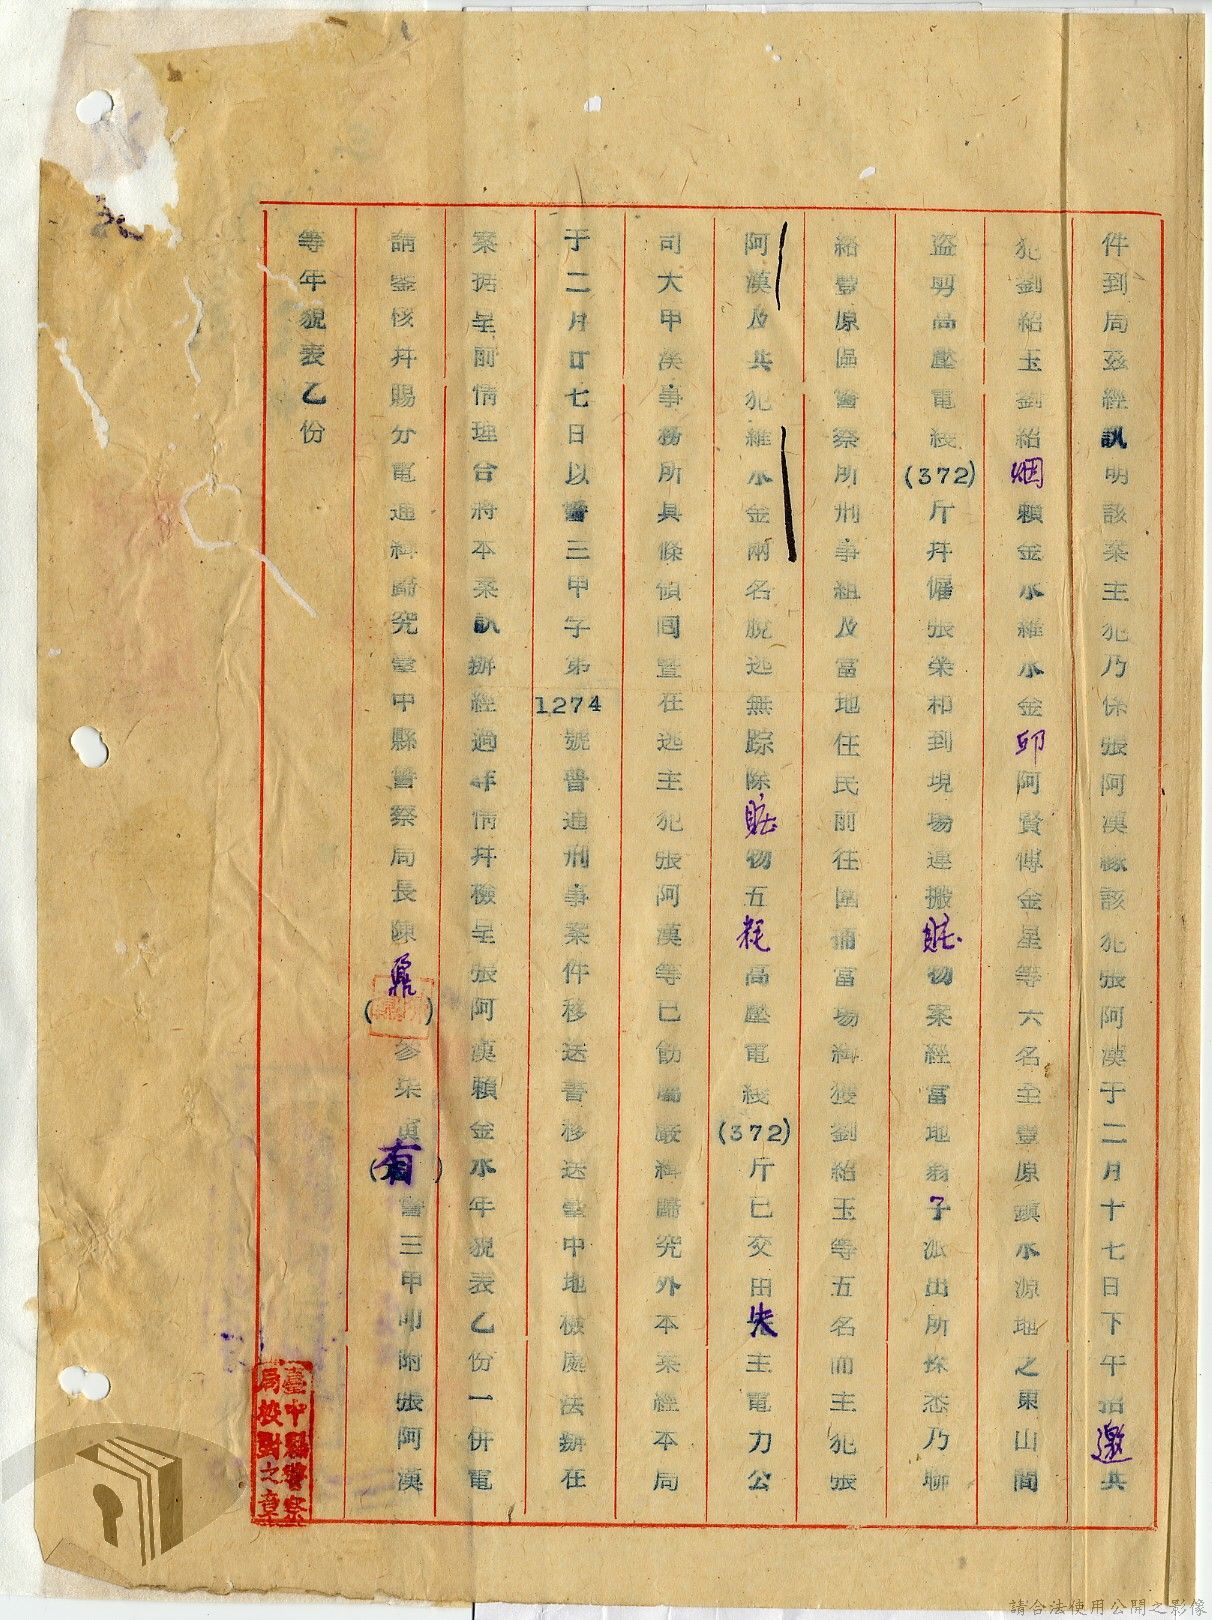 件到局茲經訊明該案主犯乃係張阿漢緣該犯張阿漢于二月十七日下午招邀共
犯劉紹玉劉紹烟賴金水羅水金邱阿賢傅金星等六名至豐原鎮水源地之東山間
盜剪高壓電綫(372)斤幷僱張榮和到現場運搬賍物案經當地翁子派出所探悉乃聯
絡豐原區警察所刑事組及當地住民前往圍捕當場緝獲劉紹玉等五名而主犯張
阿漢及共犯羅水金兩名脫逃無踪除賍物五綑高壓電綫(372)斤已交由失主電力公
司大甲溪事務所具條領回暨在逃主犯張阿漢等已飭屬嚴緝歸究外本案經本局
于二月廿七日以警三甲字第1274號普通刑事案件移送書移送臺中地檢處法辦在
案据呈前情理合將本案訊辦經過詳情幷檢呈張阿漢賴金水年貌表乙份一併電
請鑒核幷賜分電通緝歸究臺中縣警察局長陳( )參柒寅(有)警三甲叩附張阿漢
等年貌表乙份
臺中縣警察
局校對之章
請合法使用公開之影像